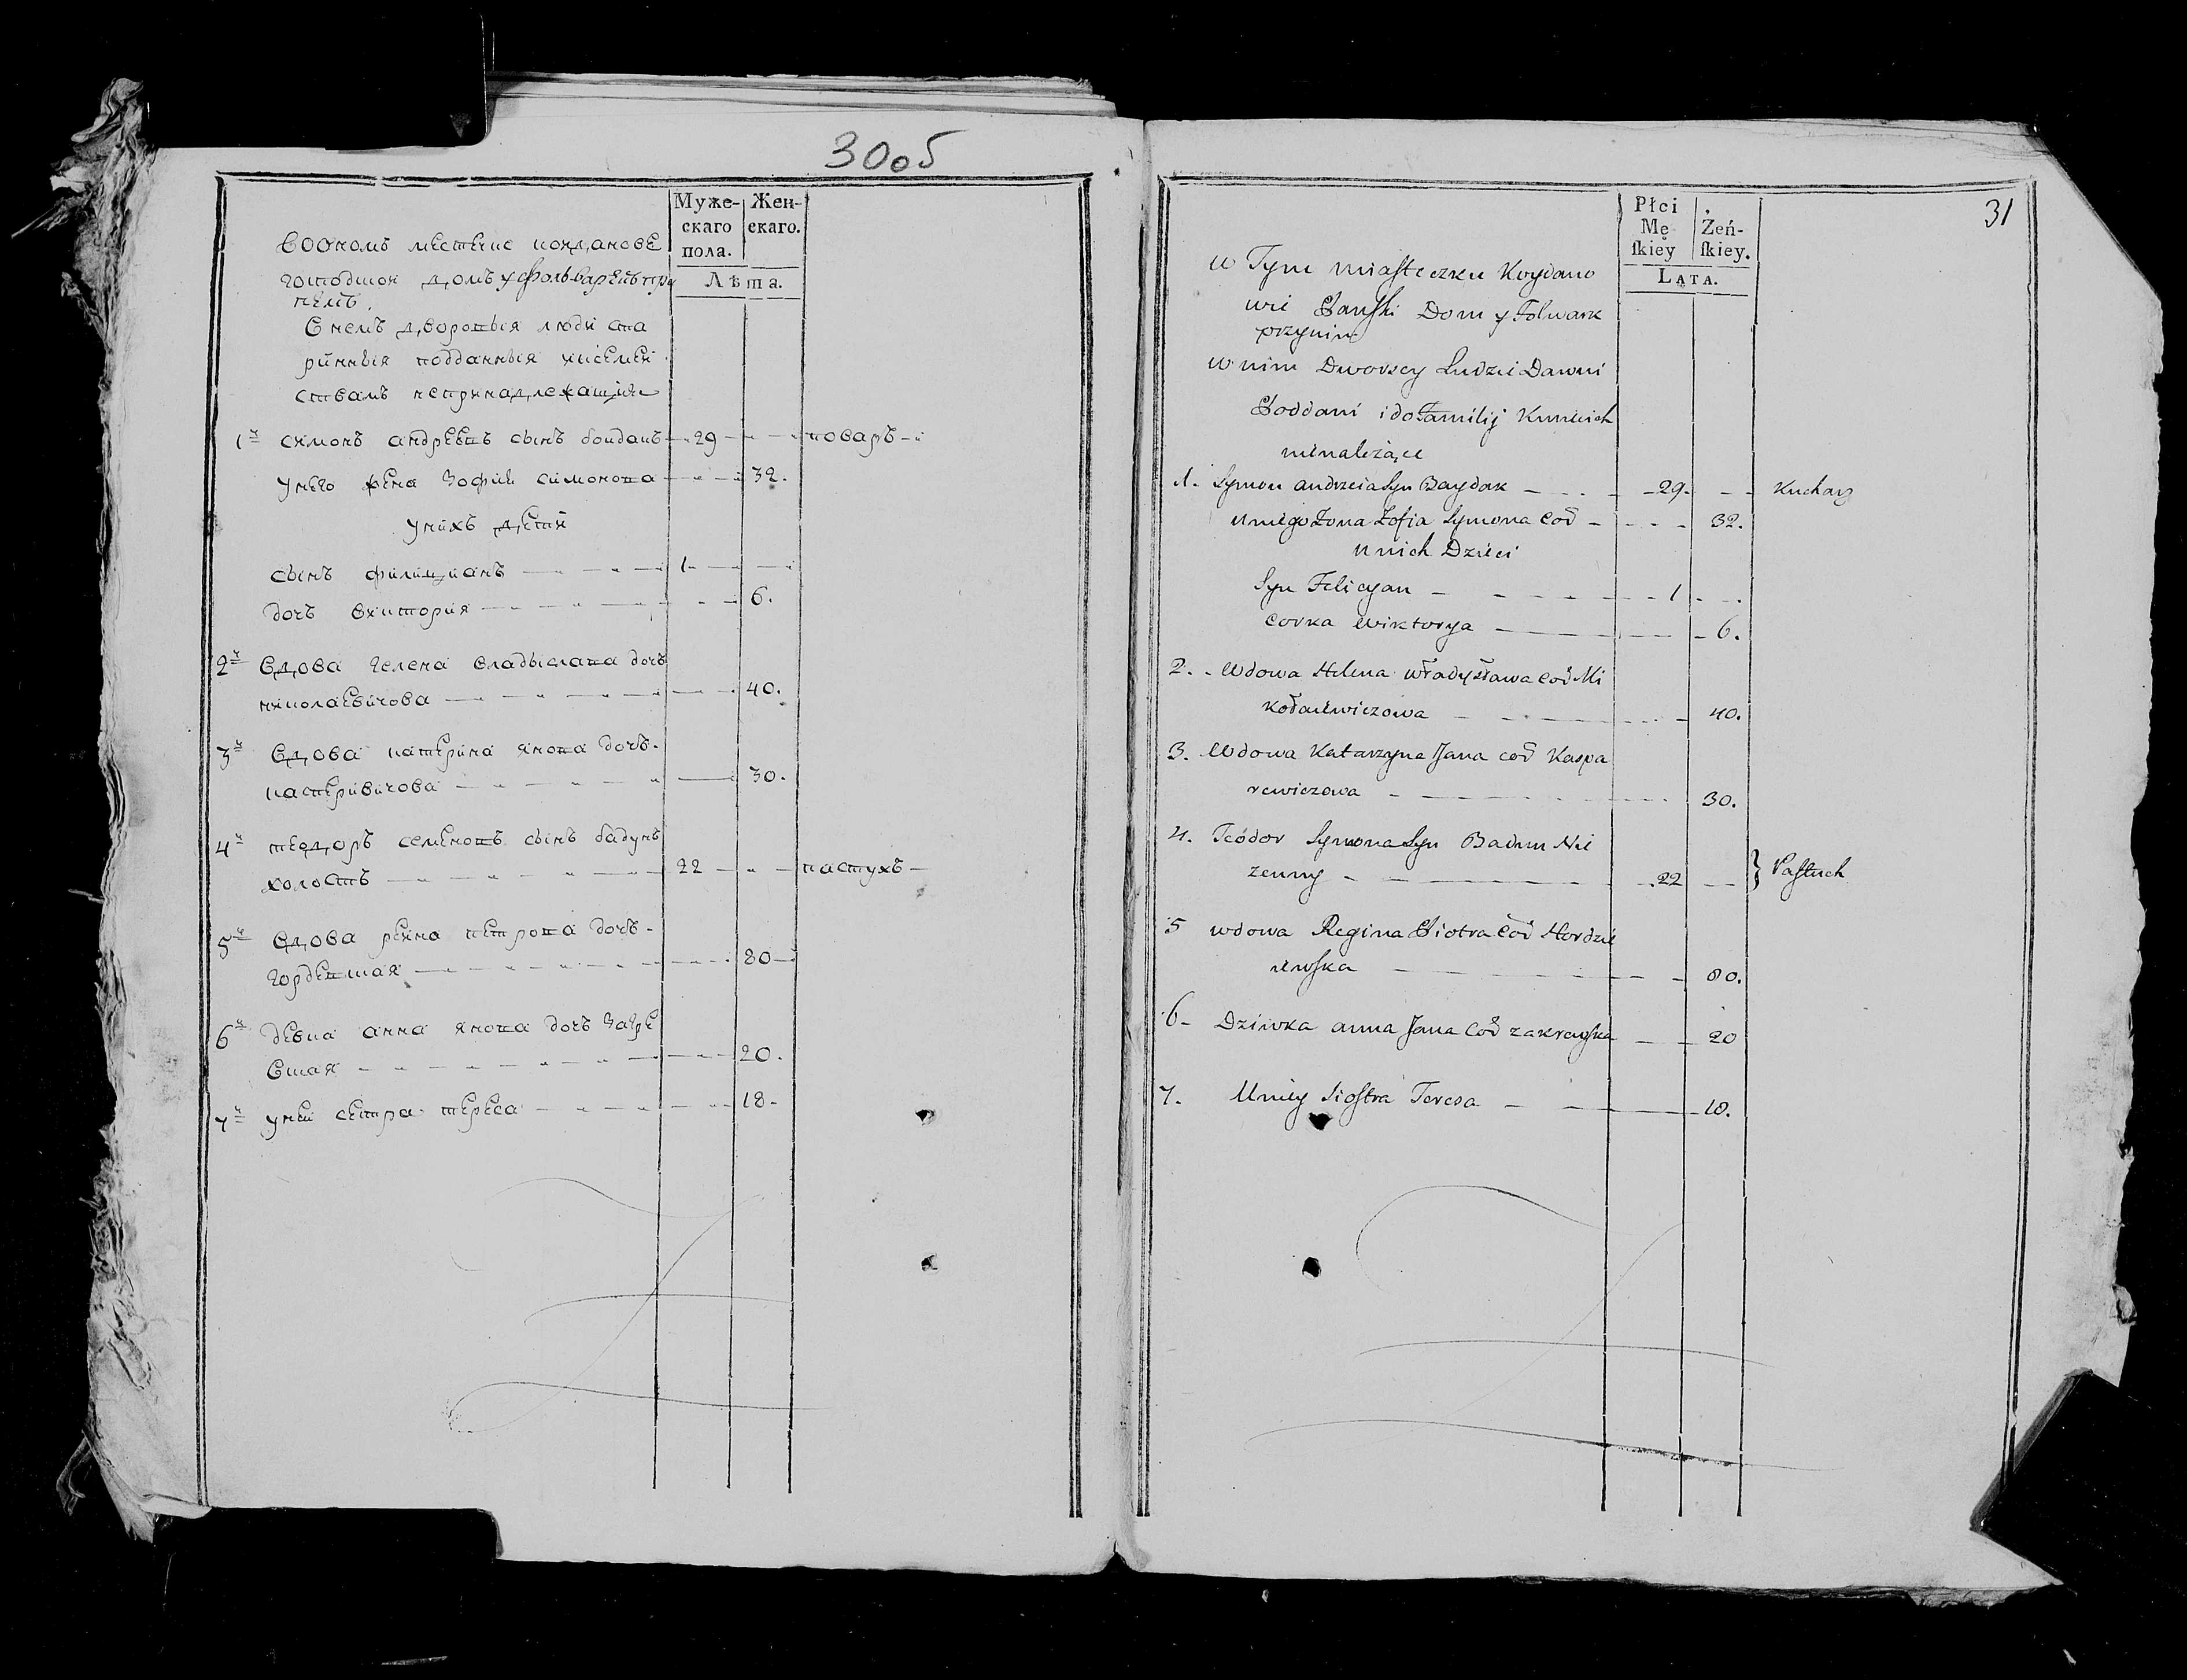 30об
Муже-
скаго
пола.
Жен-
скаго.
Лѣта.
местечке койданове
домъ уфольваренъ при
немъ.
Внемъ дворовыя люди ста
ринныя подданныя
ствамъ непринадлежащия
1й симонъ андреевъ сынъ боидакъ 29 поваръ
унего жена зофия симонова 32.
унихъ дети
сынъ филицианъ 1
дочь виктория 6.
2й вдова гелена владыслава дочь
николаевичова 40.
3й вдова катерина янова дочь
кастеривичова 30.
4й теодоръ семеновъ сынъ бадунъ
холостъ 22 пастухъ
5й вдова реина петрова дочь
гордевская 80
6й девка анна янова дочь закре
вская 20.
7й уней сестра тереса 18
31
Płci
Mę
ſkiey
Żeń-
ſkiey.
Lata.
w Tym miasteczku Koydano
wie Pański Dom y Folwark
przynim
w nim Dworscy Ludzie Dawni
Poddani i do Familij Kmiecich
nienależące
1. Symon andrzeia Syn Baydak 29. Kucharz
uniego Żona Zofia Symona Cor 32.
unich Dzieci
Syn Felicyan 1
Corka Wiktorya 6.
2. Wdowa Helena władysława Cor Mi
kołaiewiczowa 40.
3. Wdowa Katarzyna Jana cor Kaspa
rewiczowa 30.
4. Teodor Symona Syn Badun Nie
żenny 22 } Pastuch
5 wdowa Regina Piotra Cor Hordzie
iewska 80.
6 Dziewka anna Jana Cor zakrewska 20
7. Uniey Siostra Teresa 18.